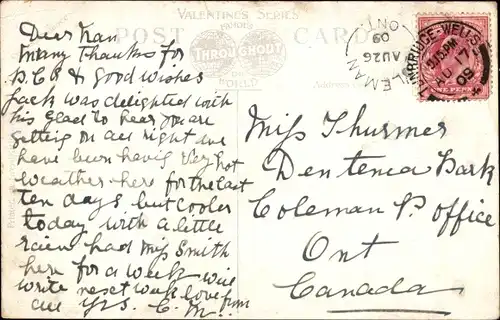 VALENTINES SERIES
FAMOUS
THROUGHOUT
WORLD
POST CARD
Dear Nan
Many Thanks for
P.C's & Good Wishes
Jack was delighted with
his Glad to hear you are
getting on all right we
have been havig Very hot
weather here for the last
ten days but cooler
today with a little
rain had Miss Smith
here for a week will
write next week love from
all Yrs. E. M.
COLEMAN
AU 26
09
ONT.
TUNBRIDGE-WELLS
9.15PM
AU 17
09
ONE PENNY
Miss Thurmer
Dentenia Park
Coleman P. office
Ont
Canada